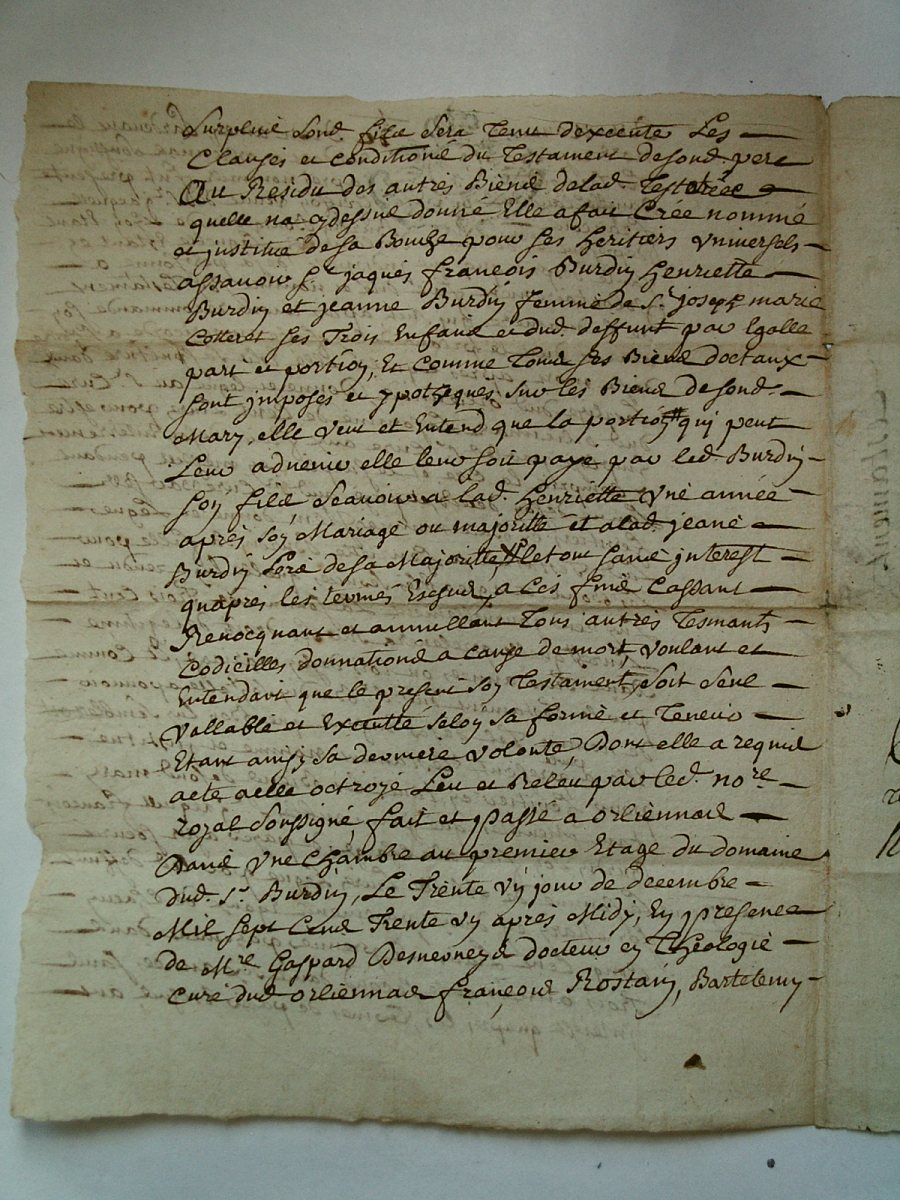 Surplus sond. fils sera tenu dexecuté Les
Clauses et conditions du Testament de sond. pere
Au Residu des autres Biens de lad. Testatrice
quelle na cydessus donné Elle a fait Créé nommé
et justitué de sa Bouche pour ses heritiers vniversels
assavoir Sr. jaques francois Burdin henriette
Burdin et jeanne Burdin femme de Sr. joseph marie
Cotteret ses Trois Enfans et dud. deffunt par Egalle
part et portion, Et comme Tous ses Biens doctaux
sont jmposés et ypotheques sur les Biens de sond.
Mary, elle veut et Entend que la portion qui peut
Leur advenir elle leur soit payé par led. Burdin
son fils Scauoir a lad. henriette vne année
après son Mariage ou majorité et a lad. jeane
Burdin Lors de sa Majoritte, Et le tout sans jnterest
quapres les termes Escheus, a Ces fins Cassant
Revocquant et annullant Tous autres Tesmants
Codicilles donnations a cause de mort, voulant et
Entendant que le present son Testament soit seul
Vallable et Executté selon sa forme et Teneur
Etant ainsy sa derniere volonté Dont elle a requis
acte a elle octroyé Leu et Releu par led. nore.
royal Soussigné, fait et passé a orliennas
Dans vne Chambre au premier Etage du domaine
dud. Sr. Burdin, Le Trente vn jour de decembre
Mil sept Cens Trente vn après Midy, En presence
de Mre Gaspard Desverneys docteur en Theologie
Curé dud. orliennas françois Rostain, Bartelemy